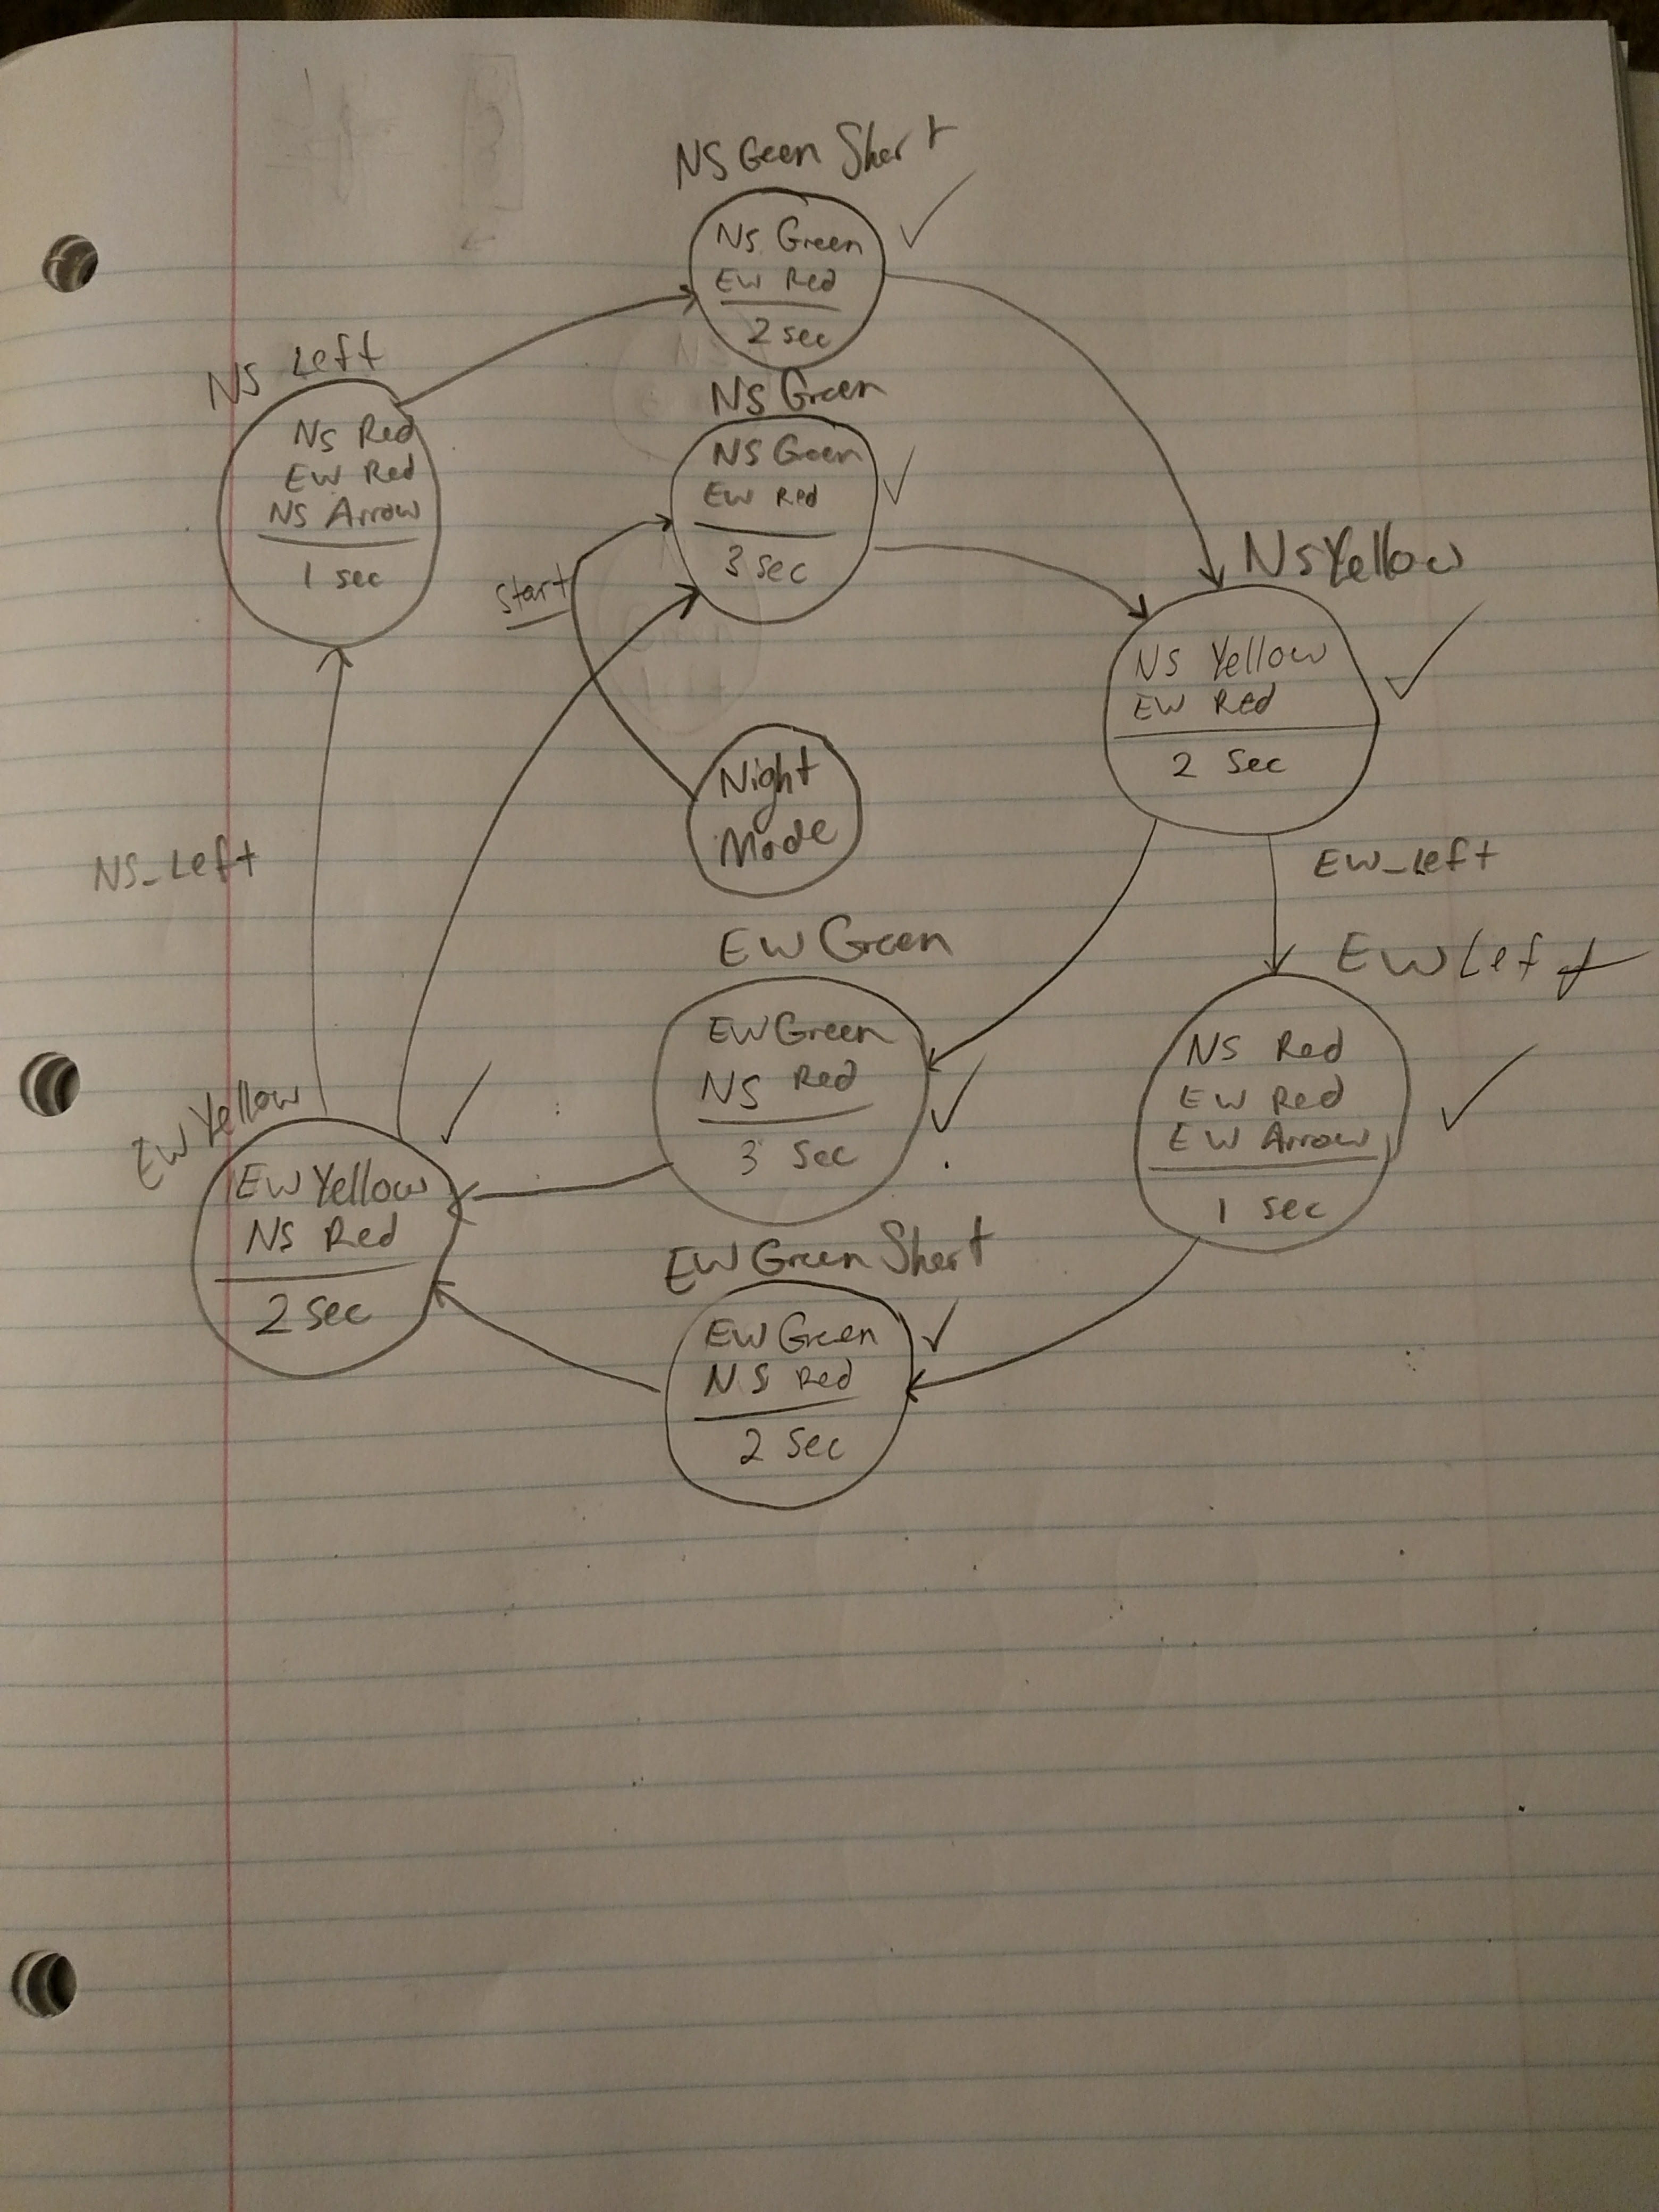 NS Geen Short
NS Green
EW Red
2 sec
NS Left
NS Red
EW Red
NS Arrow
1 sec
NS Green
NS Geen
EW Red
3 sec
Start
NSYellow
NS Yellow
EW Red
2 Sec
Night
Mode
NS_Left
EW_Left
EW Green
EW Green
NS Red
3 Sec
EW Left
NS Red
EW Red
EW Arrow
1 sec
EW Yellow
EW Yellow
NS Red
2 Sec
EW Green Short
EW Green
NS Red
2 Sec